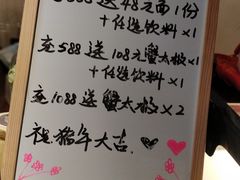 充588送48元面1份
+任选饮料×1
充588送108元蟹太极
+任选饮料×1
充1088送蟹太极×2
祝:猪年大吉.